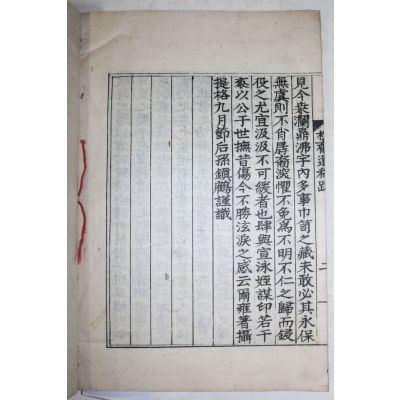 齋遺稿跋 二
見今桒瀾鼎沸宇內多事巾笥之藏未敢必其永保
無虞則不肖孱裔深懼不免爲不明不仁之歸而鋟
役之尤宜汲汲不可緩者也肆與宣泳姪謀印若干
袠以公于世撫昔傷今不勝泫淚之感云爾雍著攝
提格九月節后孫鎭鶴謹識